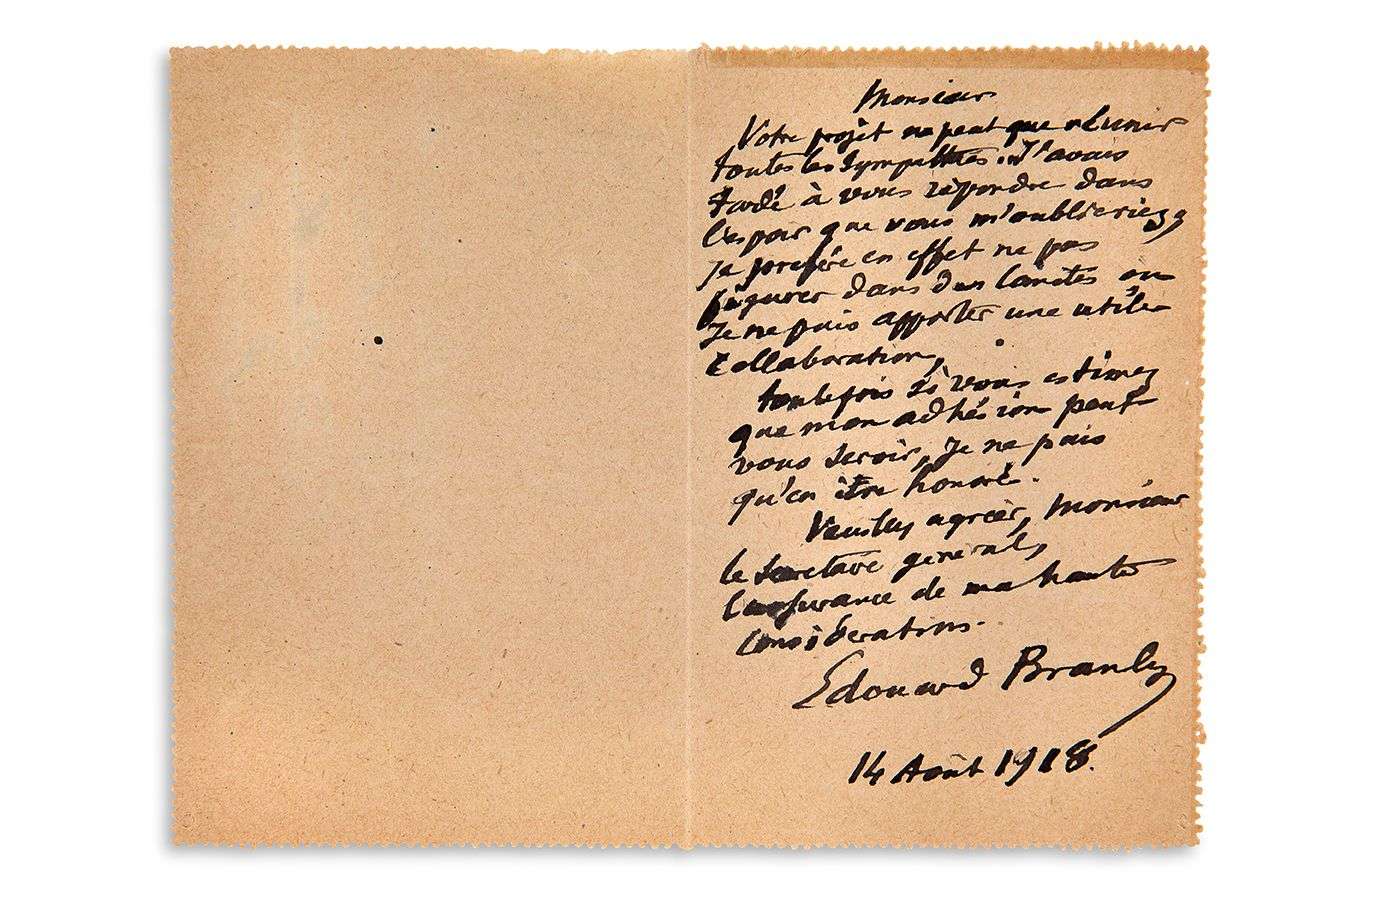 Monsieur
Votre projet ne peut que réunir
toutes les sympathies. J'avais
tardé à vous répondre dans
l'espoir que vous m'oublieriez,
je préfère en effet ne pas
figurer dans des comités où
je ne puis apporter une utile
collaboration,
toutefois si vous estimez
que mon adhésion peut
vous servir, je ne puis
qu'en être honoré.
Veuillez agréer, Monsieur
le secrétaire général,
l'assurance de ma haute
considération.
Edouard Branly
14 Août 1918.